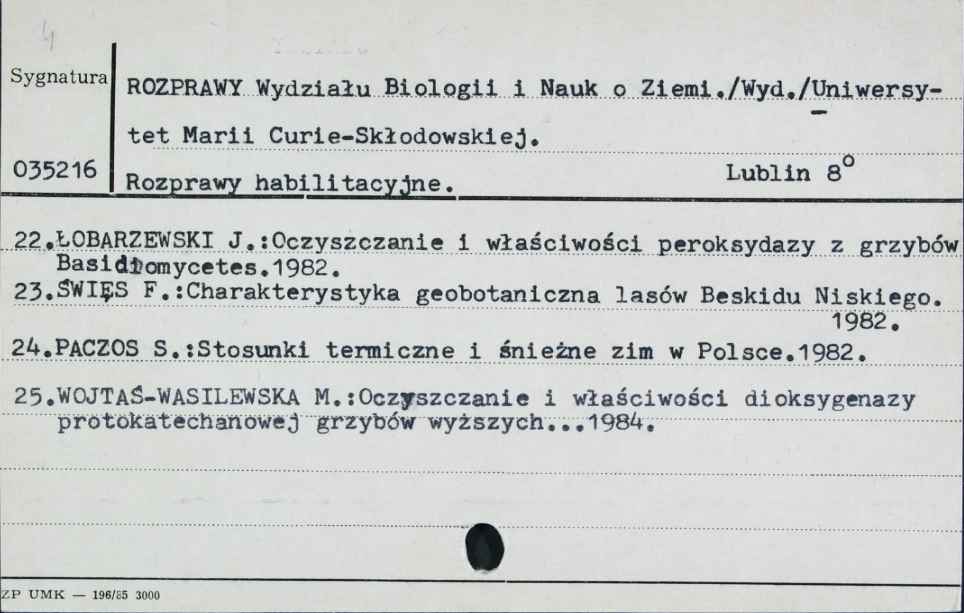 4
Sygnatura
ROZPRAWY Wydziału Biologii i Nauk o Ziemi./Wyd./Uniwersy-
tet Marii Curie-Skłodowskiej.
035216
Lublin 8°
Rozprawy habilitacyjne.
22.ŁOBARZEWSKI J.:Oczyszczanie i właściwości peroksydazy z grzybów
Basidiomycetes.1982.
23.ŚWIĘS F.:Charakterystyka geobotaniczna lasów Beskidu Niskiego.
1982.
24.PACZOS S.:Stosunki termiczne i śnieżne zim w Polsce.1982.
25.WOJTAŚ-WASILEWSKA M.:Oczyszczanie i właściwości dioksygenazy
protokatechanowej grzybów wyższych...1984.
ZP UMK — 196/85 3000